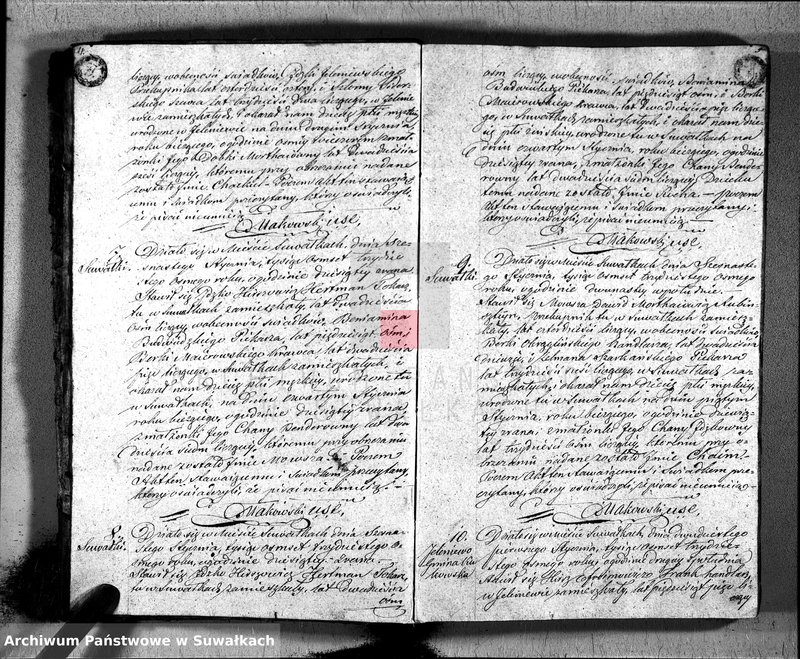 liczący, w obecności świadków,
Nakupnika lat czterdzieści
lat trzydzieści dwa liczącego, w Jeleniewie
wie zamieszkałych, i okazał nam dziecię płci męzkiej
urodzone w Jeleniewie na dniu drugim Stycznia
roku bieżącego, o godzinie ósmej wieczorem z małżonki
żonki Jego Dobki Mortchaiowny lat dwadzieścia
sześć liczącej, któremu przy obrzezaniu nadane
zostało Imie Chackiel. Poczem Akt ten stawającemu
mu i świadkom przeczytany, który oświadczyli,
że pisać nieumieją.
Makowski usc.
7.
Suwałki.
Działo się w Mieście Suwałkach, dnia Szes-
nastego Stycznia, tysiąc Osmset trzydzie-
stego Osmego roku, o godzinie dziesiątey z rana.
Stawił się Jdzko Hirszowicz Hertman
tu w Suwałkach zamieszkały, lat dwadzieścia
Ośm liczący, w obecności świadków, Beniamina
Piekarza, lat pięćdziesiąt ośm, i
Borki Maiorowskiego krawca lat dwadzieścia
pięć liczącego, w Suwałkach zamieszkałych, i
okazał nam dziecię płci męzkiej, urodzone tu
w Suwałkach, na dniu czwartym Stycznia
roku bieżącego, o godzinie dziesiątey z rana,
z małżonki Jego Chany Sendorowny lat dwa-
dzieścia siedm liczącej, któremu przy obrzezaniu
nadane zostało Imie Mowsza. Poczem
Akt ten stawającemu i świadkom przeczytany,
który oświadczyli, że pisać nieumieją.
Makowski usc.
8.
Suwałki.
Działo się w Mieście Suwałkach dnia Szesna-
stego Stycznia, tysiąc osmset trzydziestego o-
smego roku, o godzinie dziesiątey z rana.
Stawił się Jdzko Hirszowicz Hertman
tu w Suwałkach zamieszkały, lat dwadzieścia
ośm
ośm liczący, w obecności świadków, Beniamina
Piekarza, lat pięćdziesiąt ośm, i Borki
Maiorowskiego krawca, lat dwadzieścia pięć liczące-
go, w Suwałkach zamieszkałych, i okazał nam dzie-
cię płci żeńskiej, urodzone tu w Suwałkach na
dniu czwartym Stycznia, roku bieżącego, o godzinie
dziesiątey z rana, z małżonki Jego Chany Sendo-
rowny lat dwadzieścia siedm liczącej. Dziecku
temu nadane zostało Imie. Poczem
Akt ten stawającemu i świadkom przeczytany,
który oświadczyli, że pisać nieumieją.
Makowski usc.
9.
Suwałki.
Działo się w Mieście Suwałkach dnia Szesnaste-
go Stycznia, tysiąc Osmset trzydziestego Osmego
roku, o godzinie dwunastej w południe.
Stawił się Mowsza Dawid Mortchaiewicz Rubin-
sztejn, przekupnik tu w Suwałkach zamiesz-
kały, lat czterdzieści liczący, w obecności świadków,
Borki Okragińskiego handlarza, lat dwadzieścia
dziewięć, i Piekarza
lat trzydzieści sześć liczącego w Suwałkach za-
mieszkałych, i okazał nam dziecię płci męzkiej,
urodzone tu w Suwałkach na dniu piątym
Stycznia, roku bieżącego, o godzinie dziewią-
tey z rana, z małżonki Jego Chany Jdzkowny
lat trzydzieści ośm liczącej, któremu przy o-
brzezaniu nadane zostało Imie Chaim.
Poczem Akt ten stawającemu i świadkom prze-
czytany, który oświadczyli, że pisać nieumieją.
Makowski usc.
10.
Jeleniewo
Gmina
Działo się w Mieście Suwałkach, dnia dwudziestego
pierwszego Stycznia, tysiąc osmset trzydzie-
stego osmego roku, o godzinie drugiej z południa.
Stawił się Frank handlarz,
w Jeleniewie zamieszkały, lat pięćdziesiąt pięć li-
czący
Archiwum Państwowe w Suwałkach